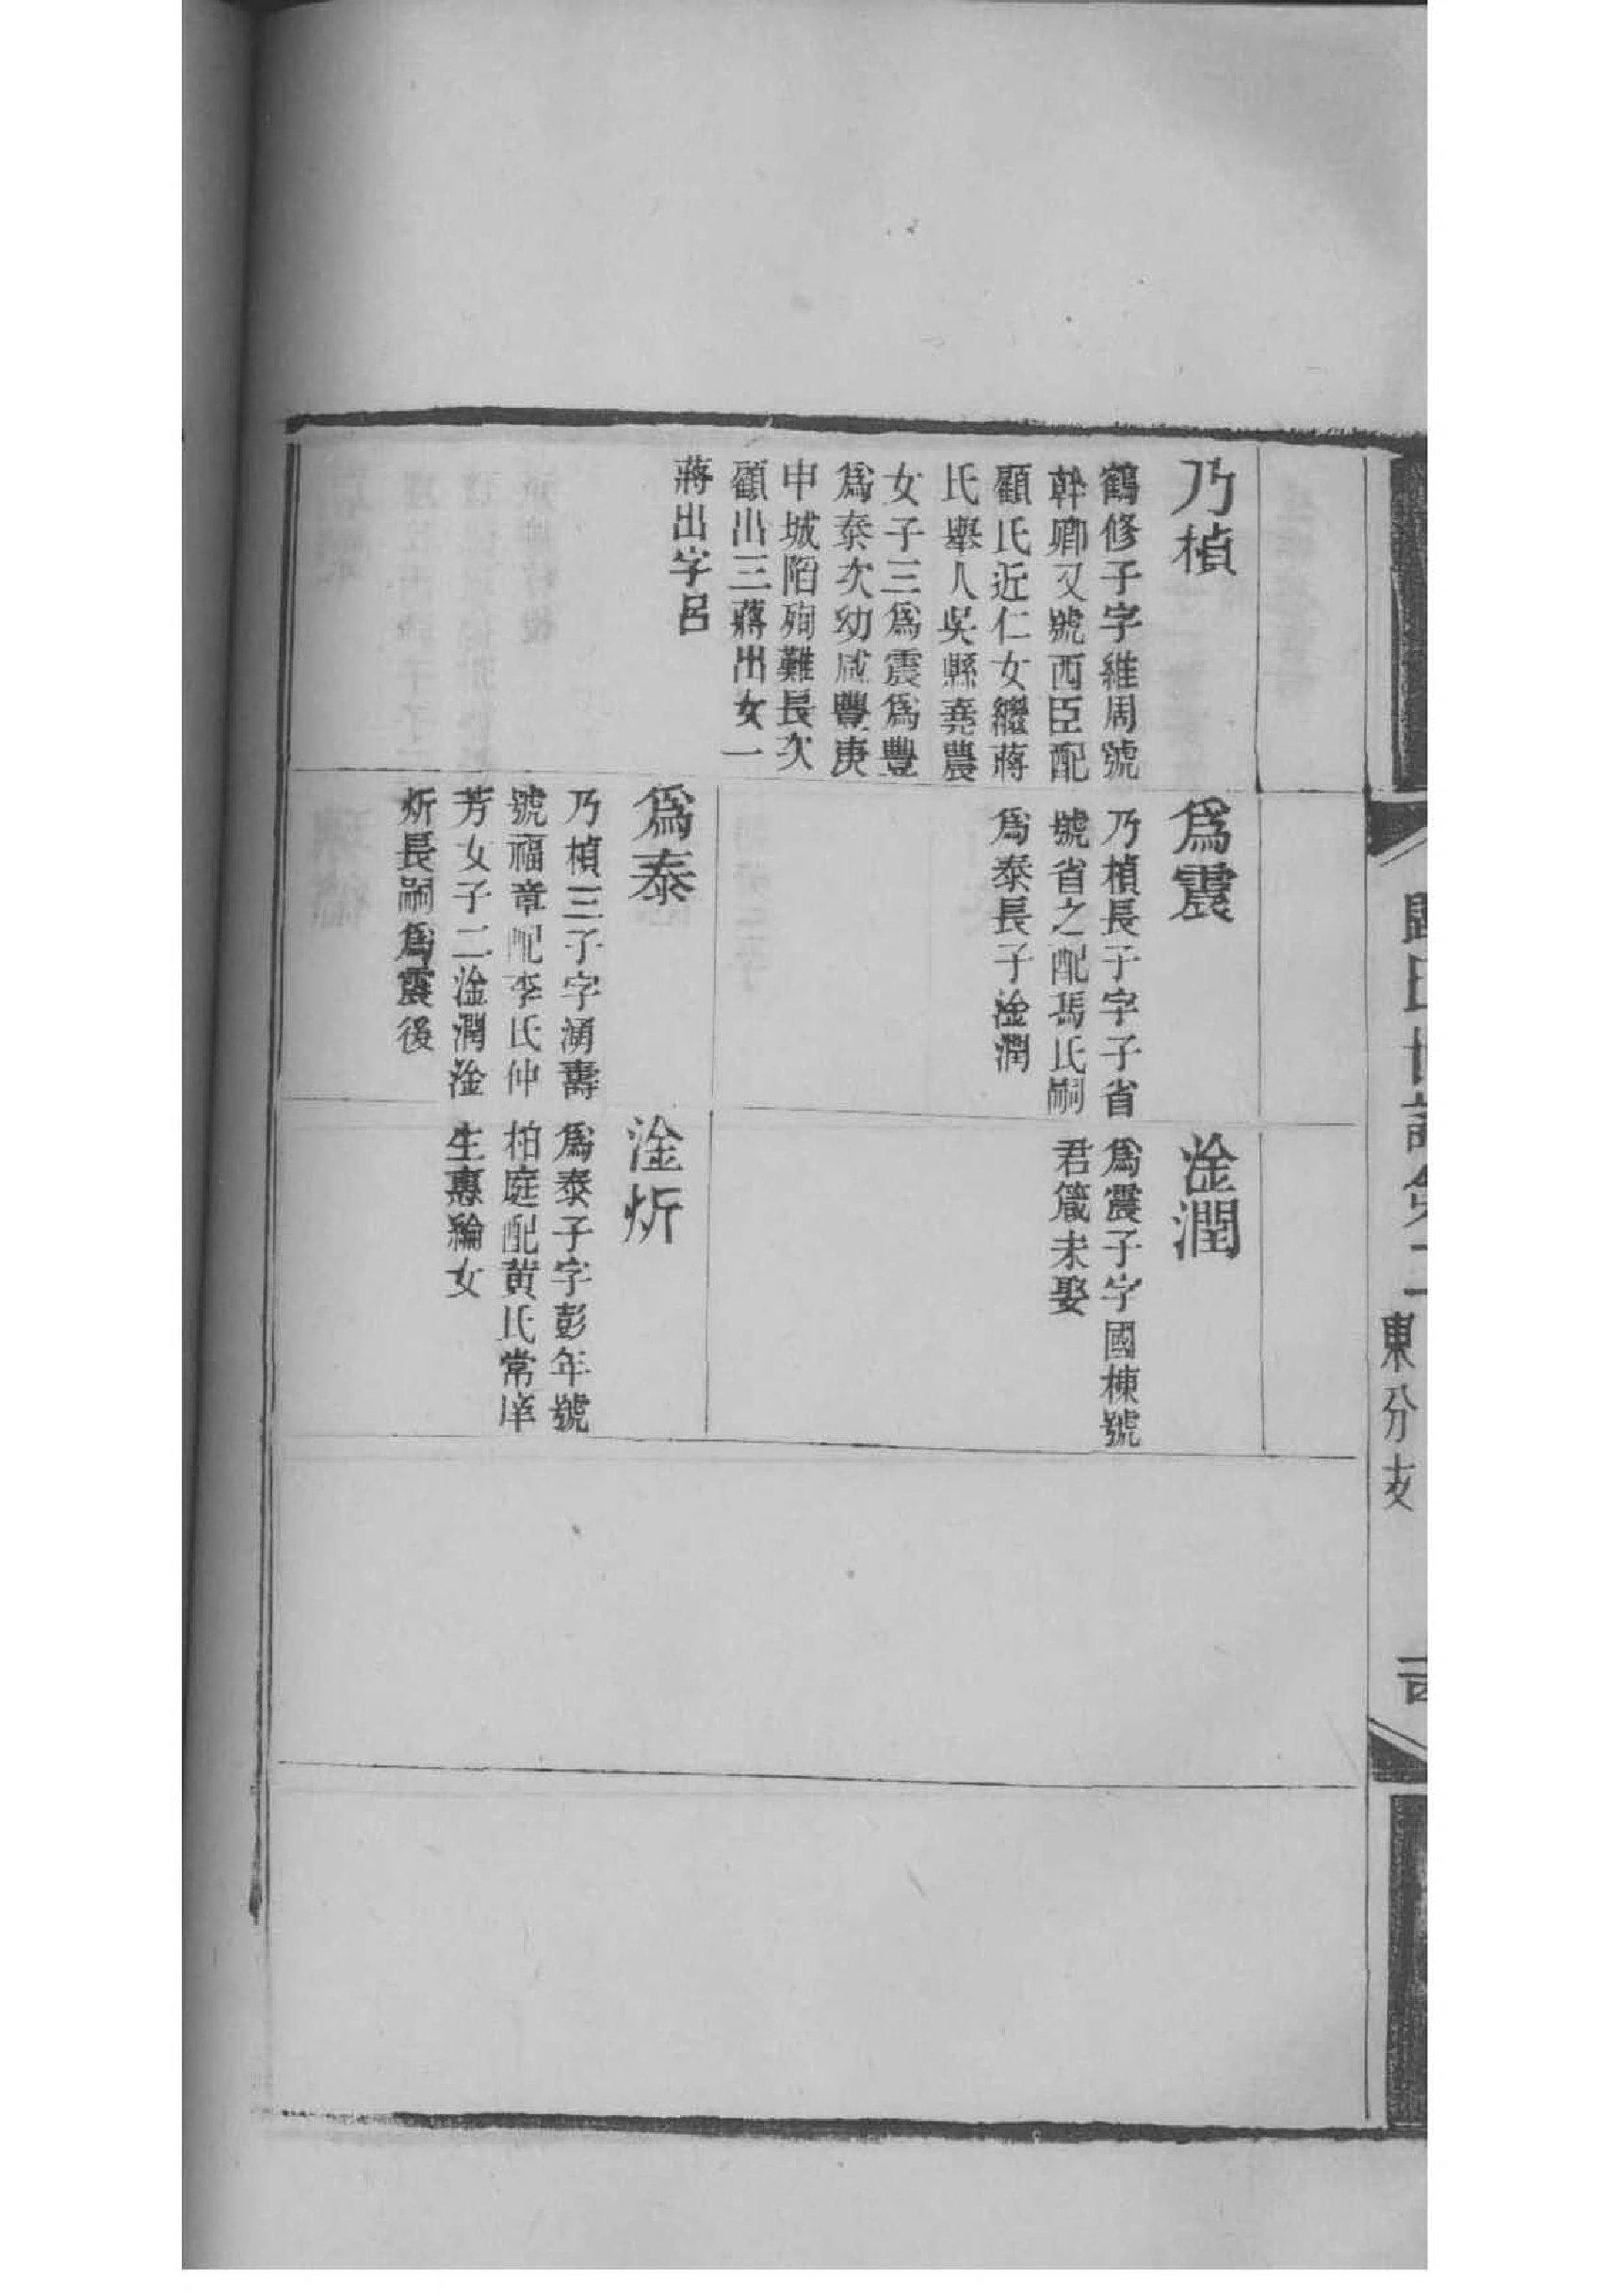 乃楨
鶴修子字維周號
幹卿又號西臣配
顧氏近仁女繼蔣
氏舉人吳縣堯農
女子三爲震爲豐
爲泰次幼咸豐庚
申城陷殉難長次
顧出三蔣出女一
蔣出字呂
爲震
乃楨長子字子省
號省之配馬氏嗣
爲泰長子淦潤
爲泰
乃楨三子字涌壽
號福章配李氏仲
芳女子二淦潤淦
炘長嗣爲震後
淦潤
爲震子字國棟號
君箴未娶
淦炘
爲泰子字彭年號
柏庭配黃氏常庠
生惠綸女
東分支